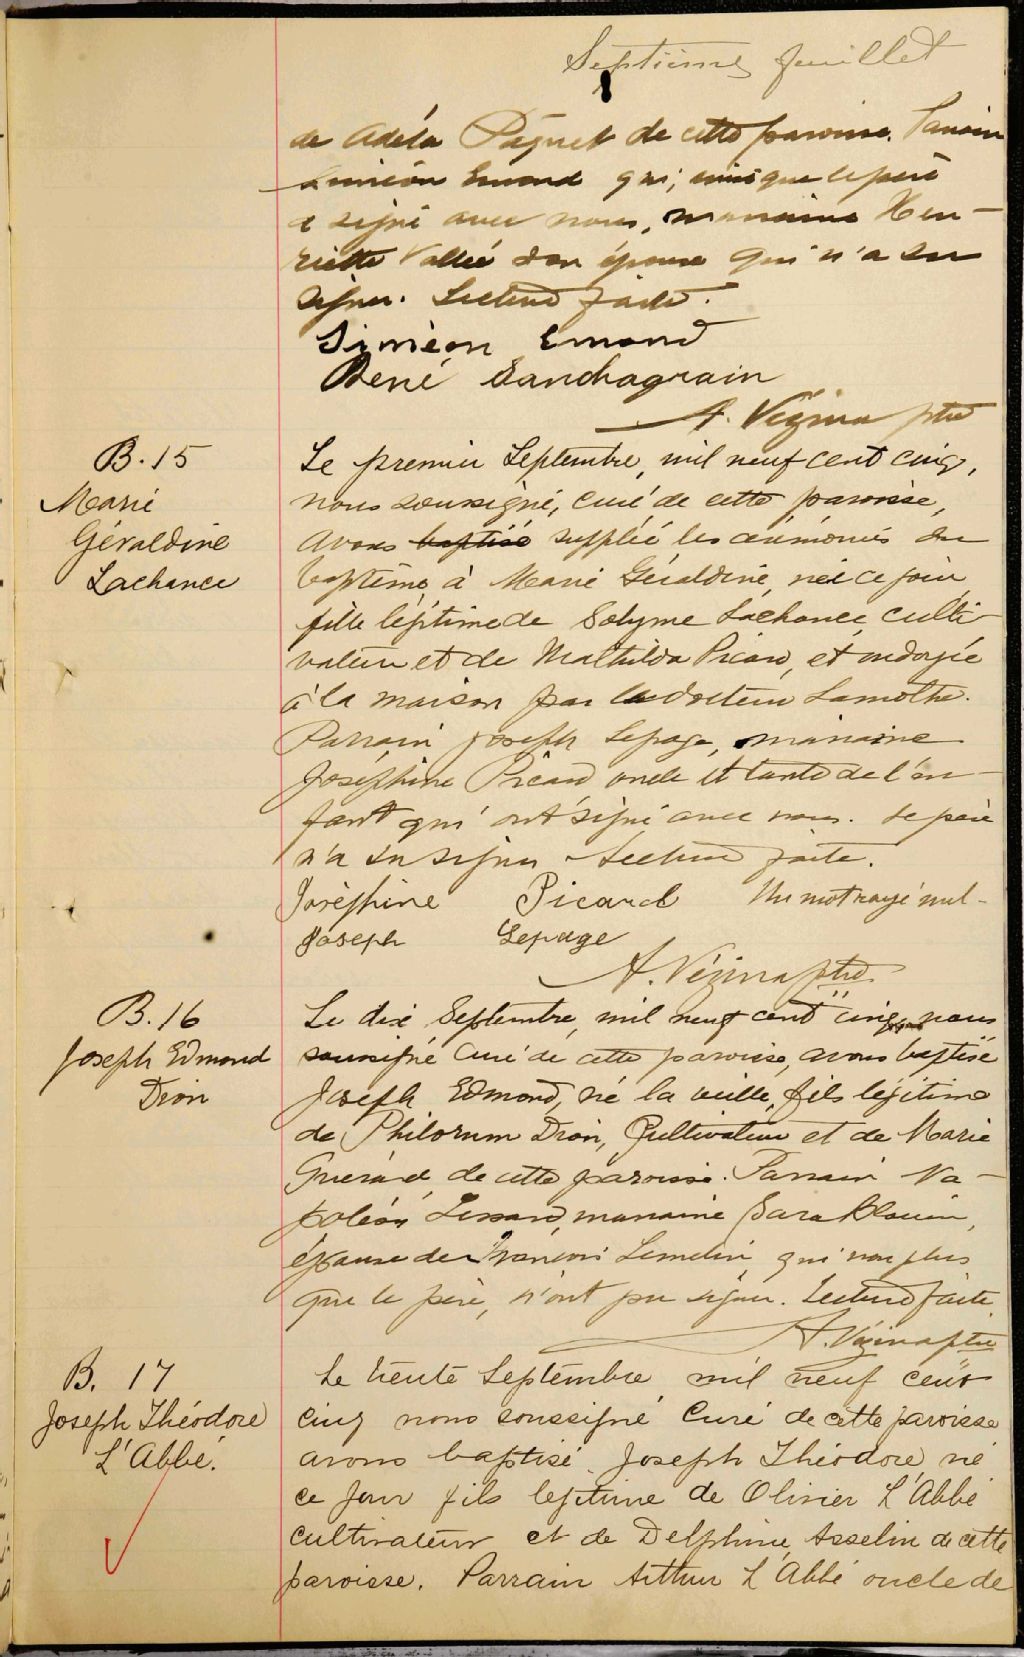 Septième feuillet
de Adéla Paquet de cette paroisse. Parrain
Siméon Emond qui, ainsi que le père
a signé avec nous, marraine Hen-
riette Vallée son épouse qui n'a su
signer. Lecture faite.
Siméon Emond
René Sanchagrain
A. Vézina ptre
B. 15
Marie
Géraldine
Lachance
Le premier Septembre, mil neuf cent cinq,
nous soussigné, curé de cette paroisse,
avons baptisé supplée les cérémonies du
baptême à Marie Géraldine, née ce jour,
fille légitime de Solyme Lachance, culti-
vateur et de Mathilda Picard, et ondoyée
à la maison par le docteur Lamothe.
Parrain Joseph Lepage, marraine
Joséphine Picard oncle et tante de l'en-
fant qui ont signé avec nous. Le père
n'a su signer. Lecture faite.
Joséphine Picard Un mot rayé nul-
Joseph Lepage
A. Vézina ptre
B. 16
Joseph Edmond
Dion
Le dix Septembre, mil neuf cent cinq, nous
soussigné Curé de cette paroisse, avons baptisé
Joseph Edmond, né la veille, fils légitime
de Philorum Dion, Cultivateur et de Marie
Guérard de cette paroisse. Parrain Na-
poléon Lessard, marraine Sara Blouin,
épouse de François Lemelin, qui non plus
que le père, n'ont pu signer. Lecture faite.
A. Vézina ptre
B. 17
Joseph Théodore
L'Abbé.
Le trente Septembre mil neuf cent
cinq nous soussigné Curé de cette paroisse
avons baptisé Joseph Théodore né
ce jour fils légitime de Olivier L'Abbé
cultivateur et de Delphine Asselin de cette
paroisse. Parrain Arthur L'Abbé oncle de